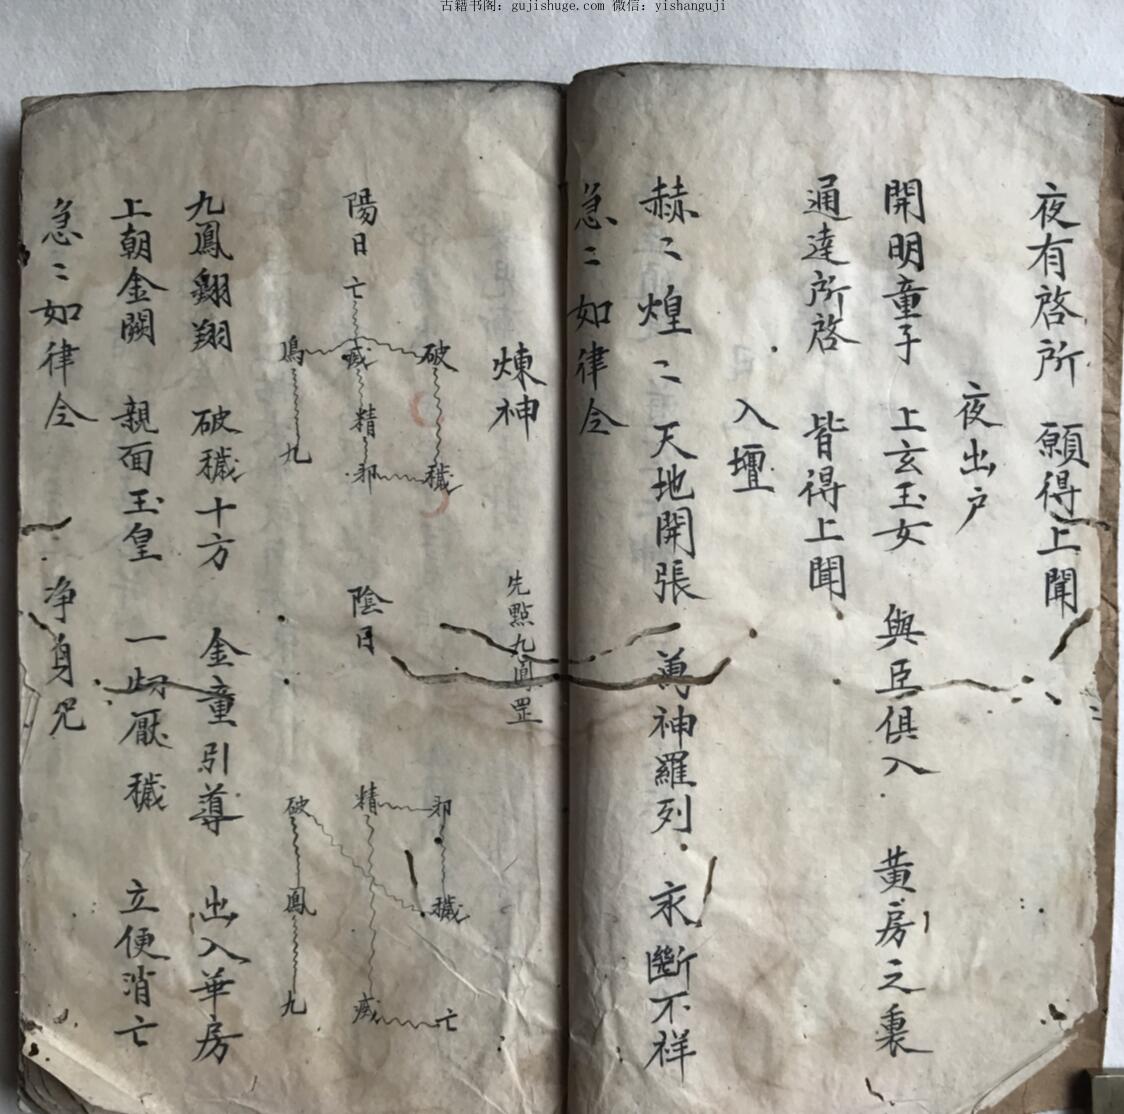 古籍书阁：gujishuge.com 微信：yishanguji
夜有啓所 願得上聞
夜出户
開明童子 上玄玉女 與臣俱入 黄房之裏
通達所啓 皆得上聞
入壇
赫〻煌〻天地開張 萬神羅列 永斷不祥
急〻如律令
煉神 先點九鳳罡
破 穢
陽日 亡 精 邪
鳳 九
陰日
邪 穢 亡
精
破 鳳 九
九鳳翱翔 破穢十方 金童引導 出入華房
上朝金闕 親面玉皇 一切厭穢 立便消亡
急〻如律令 净身咒